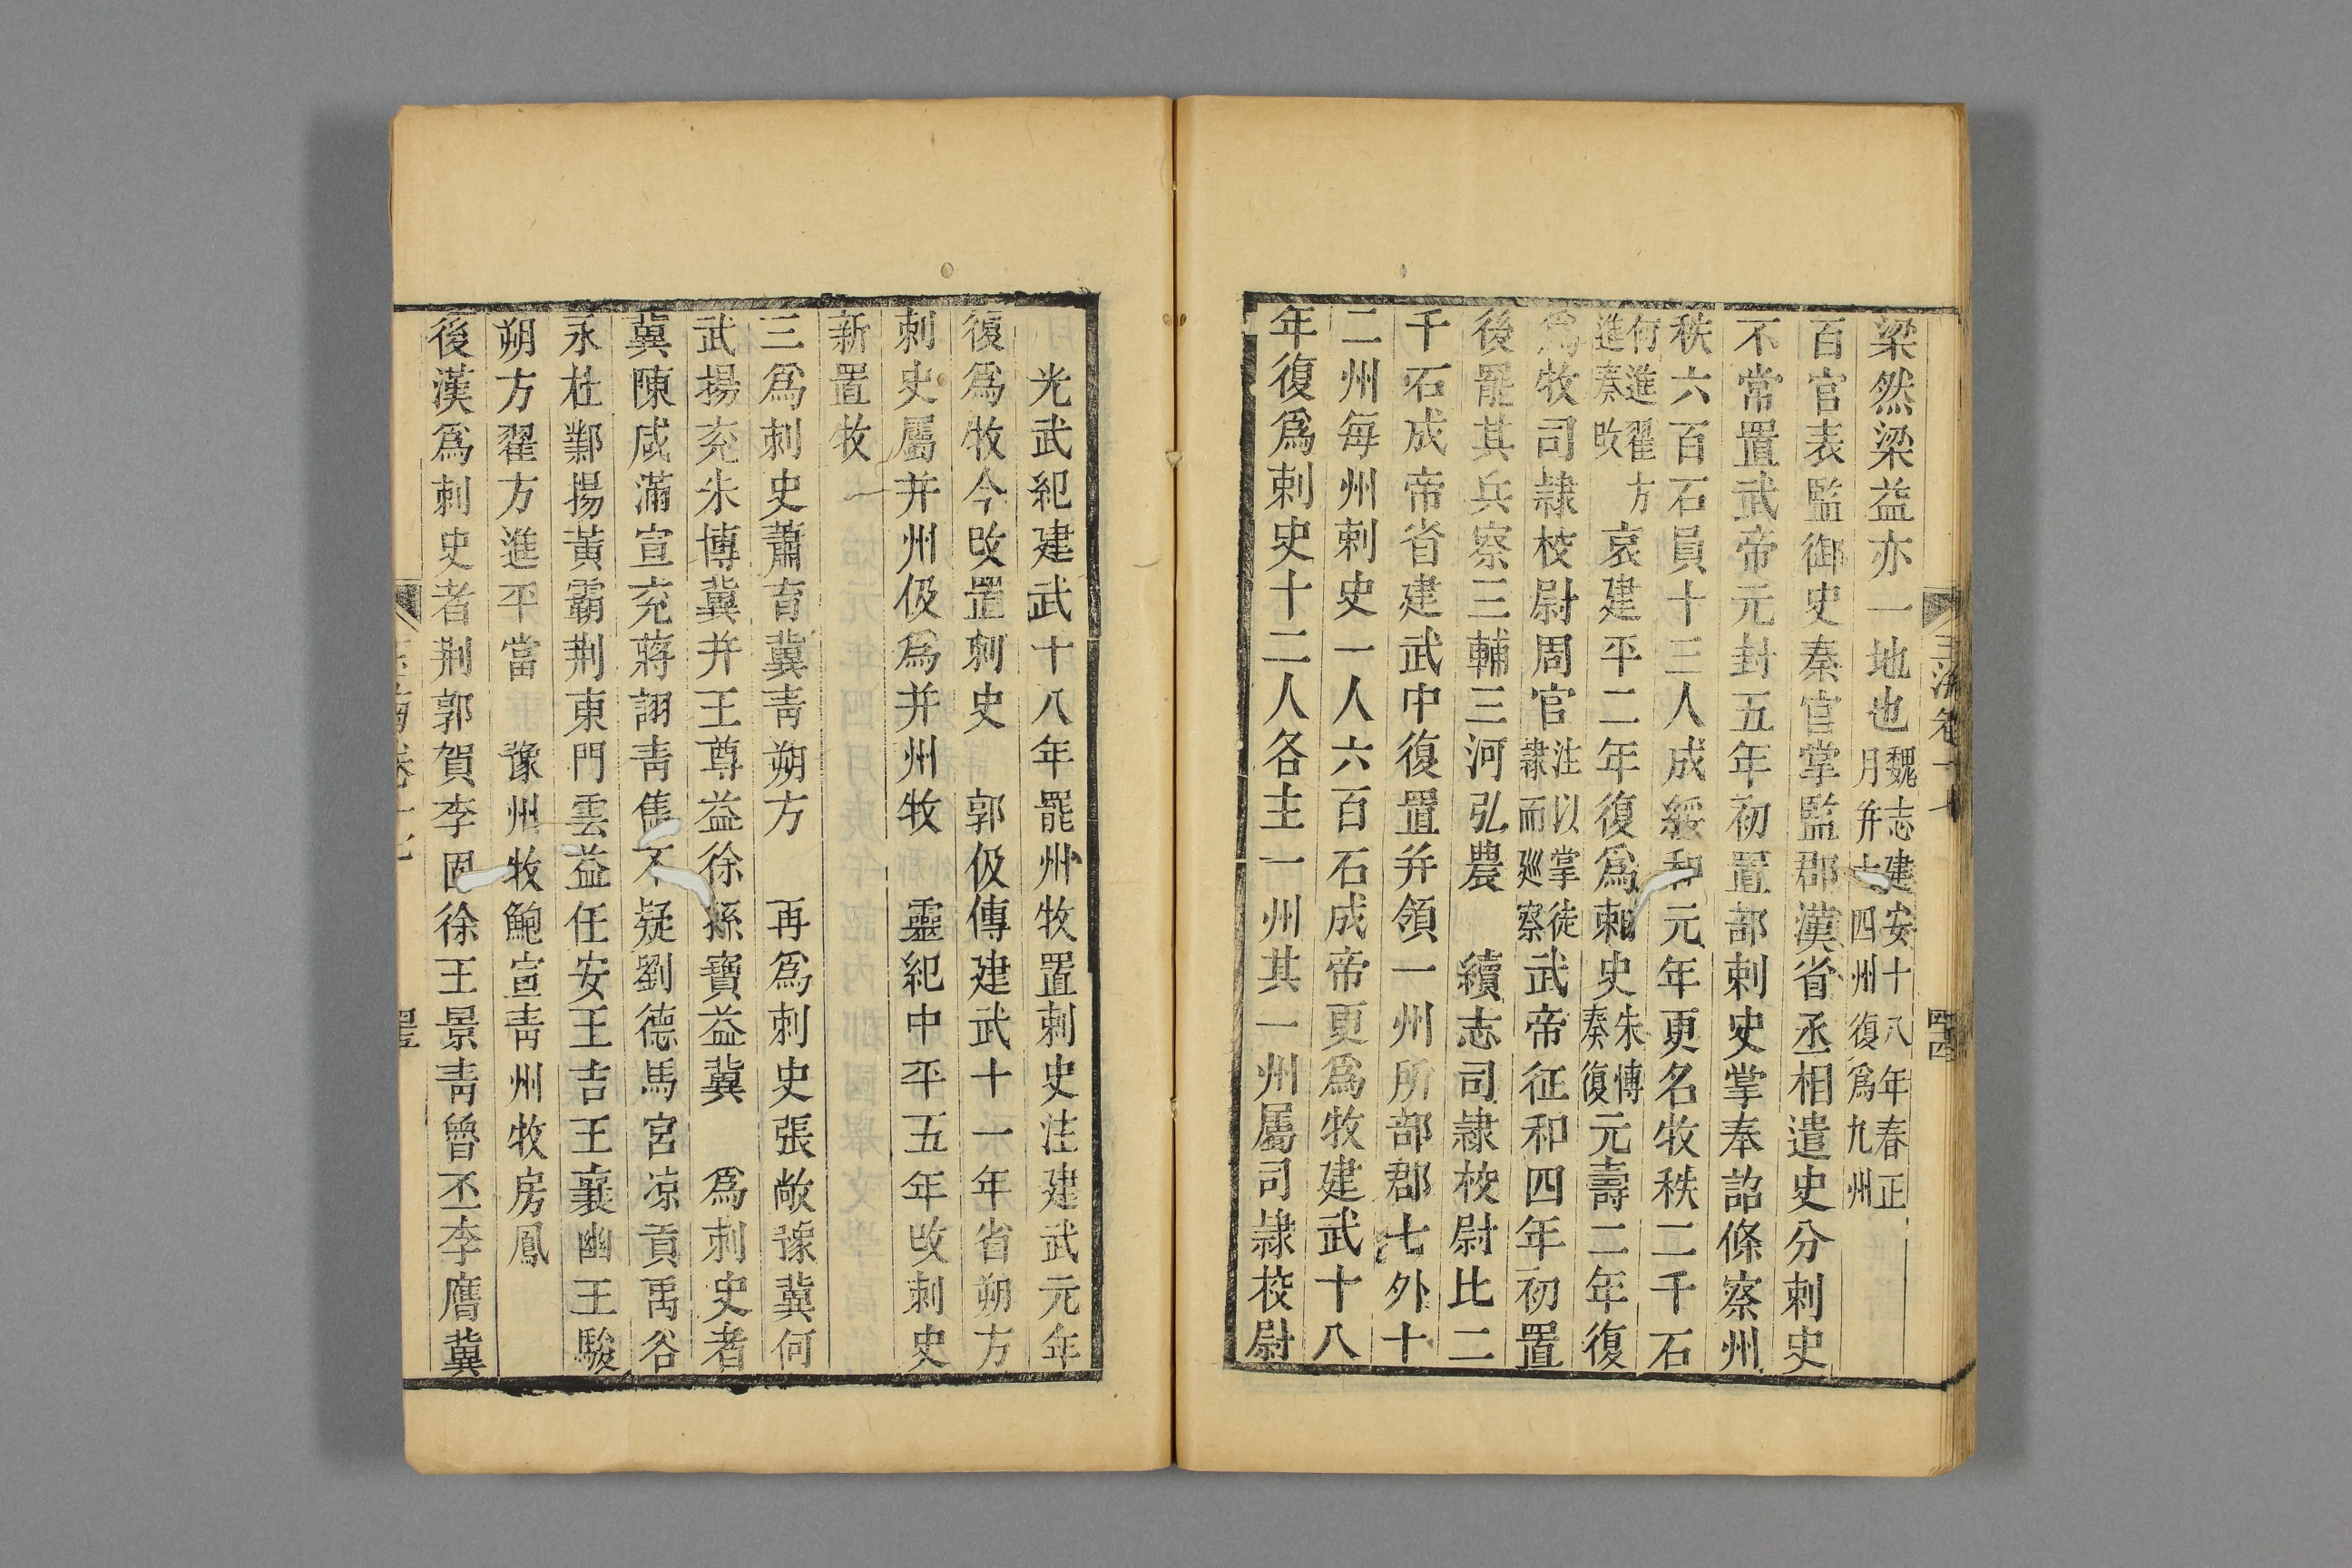 梁然梁益亦一地也魏志建安十八年春正月幷十四州復爲九州
百官表監御史秦官掌監郡漢省丞相遣史分刺史
不常置武帝元封五年初置部刺史掌奉詔條察州
秩六百石員十三人成綏和元年更名牧秩二千石
何進翟方進奏改哀建平二年復爲刺史朱博奏復元壽二年復
爲牧司隷校尉周官注以掌徒隷而廵察武帝征和四年初置
後罷其兵察三輔三河弘農 續志司隷校尉比二
千石成帝省建武中復置并領一州所部郡七外十
二州每州刺史一人六百石成帝更爲牧建武十八
年復爲刺史十二人各主一州其一州屬司隷校尉
光武紀建武十八年罷州牧置刺史注建武元年
復爲牧今改置刺史 郭伋傳建武十一年省朔方
刺史屬并州伋爲并州牧 靈紀中平五年改刺史
新置牧
三爲刺史蕭育冀青朔方 再爲刺史張敞豫冀何
武揚兖朱博冀并王尊益徐孫寶益冀 爲刺史者
冀陳咸滿宣兖蔣詡青雋不疑劉德馬宮凉貢禹谷
永杜鄴揚黃霸荆東門雲益任安王吉王襄幽王駿
朔方翟方進平當 豫州牧鮑宣青州牧房鳳
後漢爲刺史者荆郭賀李固徐王景青曾丕李膺冀
玉海卷十七
四四